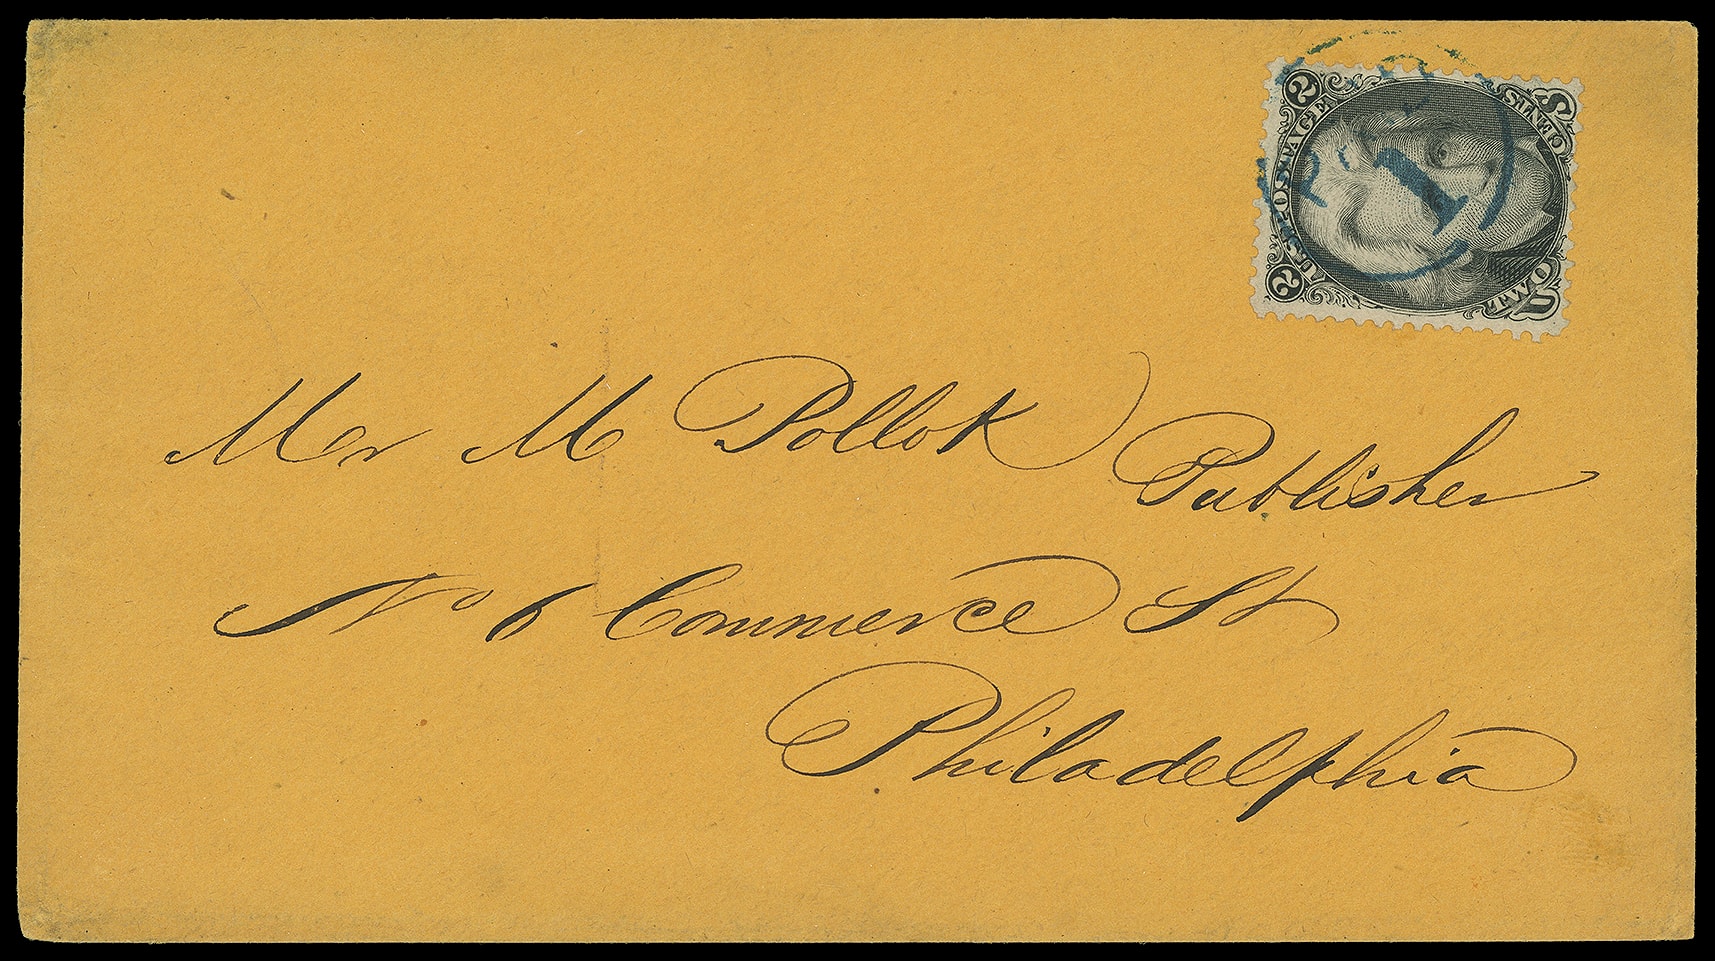 2 2
U.S. POSTAGE
TWO CENTS
U S
P
1
Mr M Pollok
Publisher
No 6 Commerce St
Philadelphia